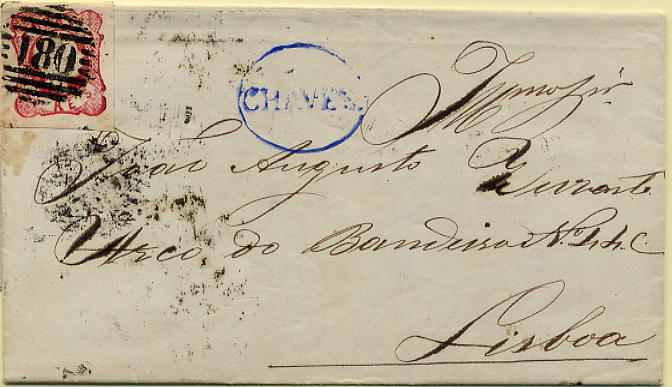 180
CHAVES.
Illmo Snr
João Augusto
Arco do Bandeira No
Lisboa